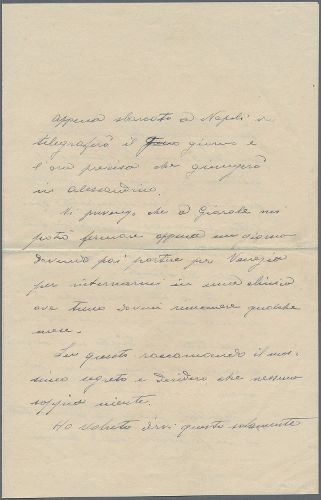 Appena sbarcato a Napoli vi
telegraferò il giorno e
l'ora precisa che giungerò
in Alessandria.
Vi prevengo che a Giarole mi
potrò fermare appena un giorno
dovendo poi partire per Venezia
per internarmi in una clinica
ove temo dovrò rimanere qualche
mese.
Su questo raccomando il mas-
simo segreto e desidero che nessuno
sappia niente.
Ho voluto dirvi questo solamente